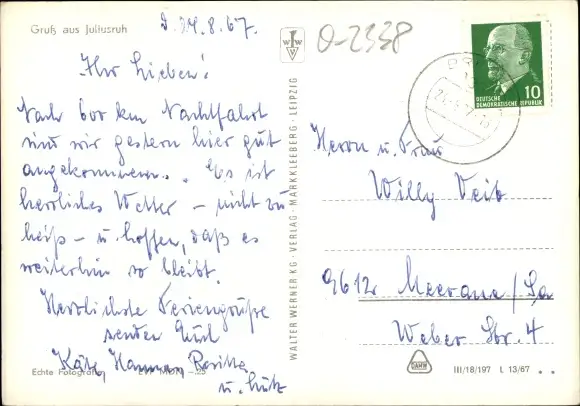 Gruß aus Juliusruh
D. 24.8.67.
Ihr Lieben!
Nach 600 km Nachtfahrt
sind wir gestern hier gut
angekommen. Es ist
herrliches Wetter – nicht zu
heiß – u. hoffen, daß es
weiterhin so bleibt.
Herzlichste Feriengrüße
senden Euch
Käte, Hannan, Rositta
u. Lutz
Echte Fotografie
WALTER WERNER KG · VERLAG · MARKKLEEBERG - LEIPZIG
0-2338
10
DEUTSCHE
DEMOKRATISCHE REPUBLIK
Herrn u. Frau
Willy Veit
9612 Meerane/Sa
Weber Str. 4
III/18/197 L 13/67